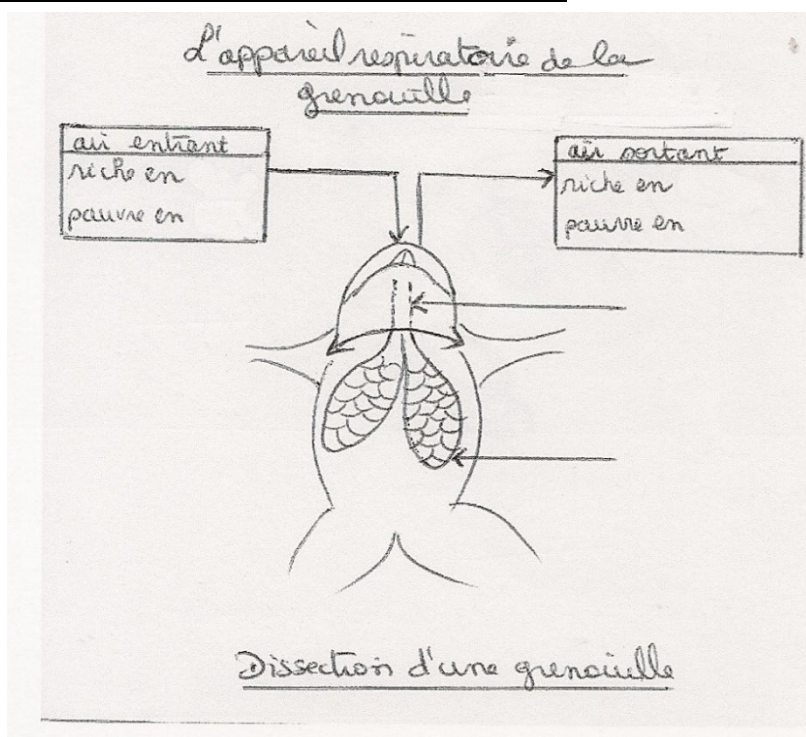 L'appareil respiratoire de la
grenouille
air entrant
riche en
pauvre en
air sortant
riche en
pauvre en
Dissection d'une grenouille